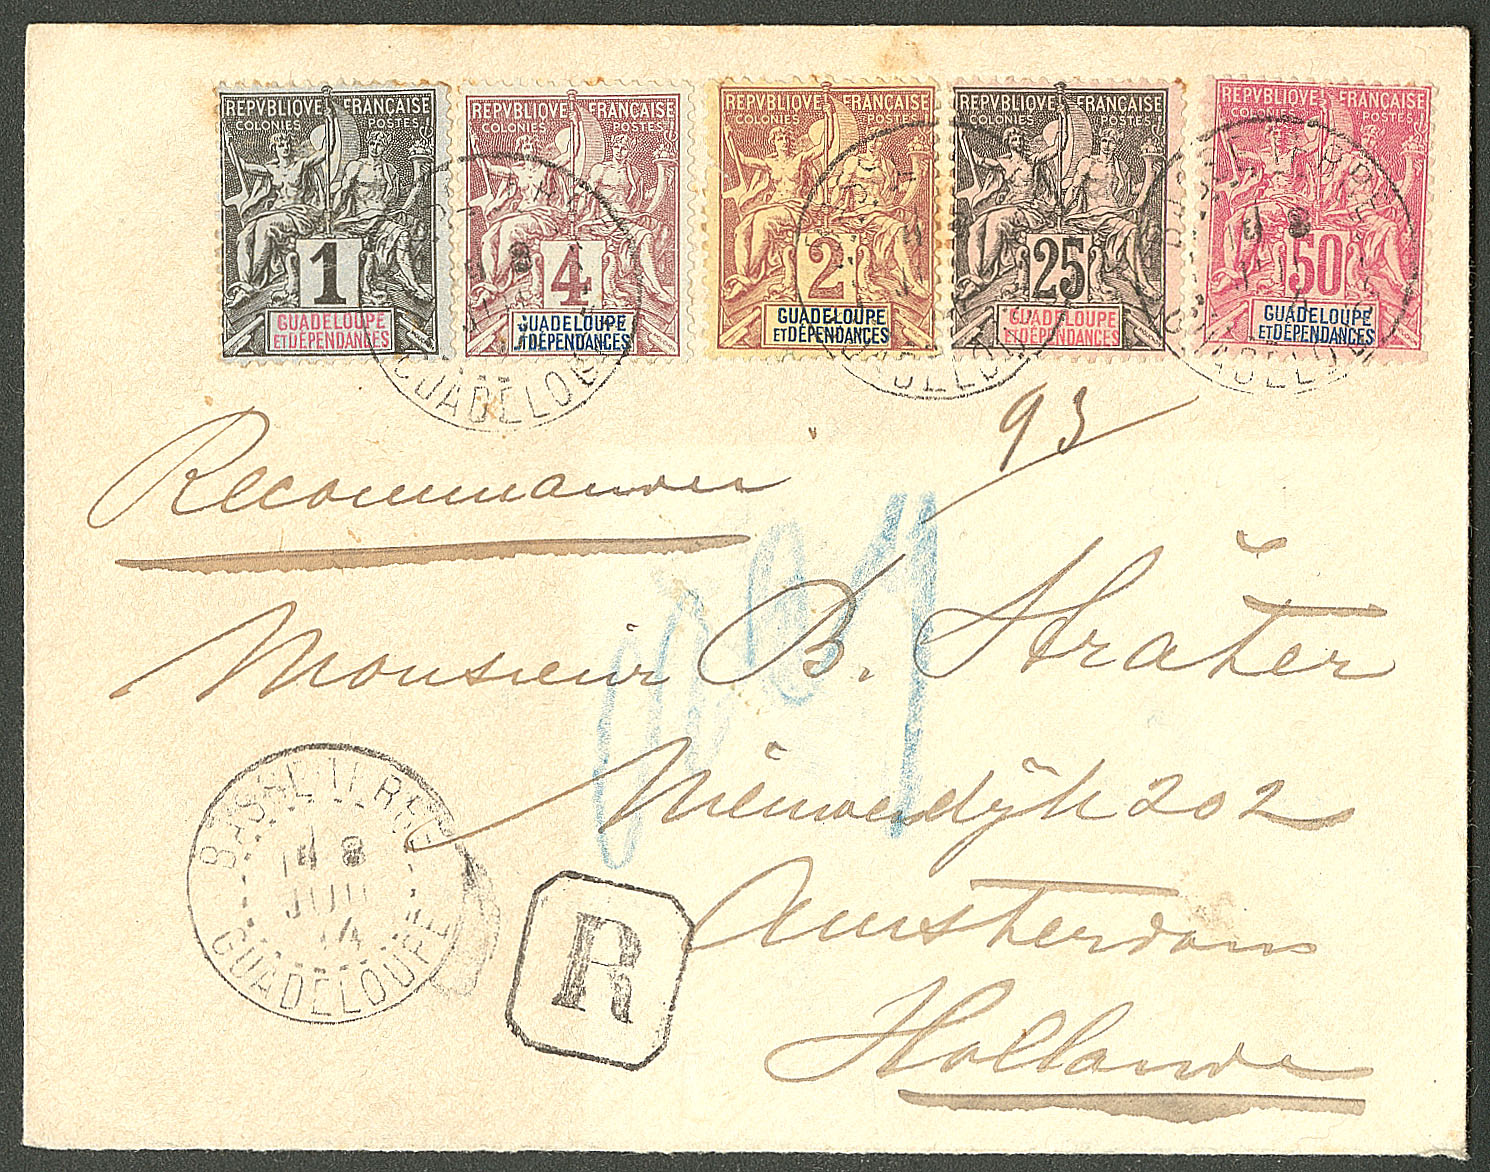 REPVBLIQVE FRANÇAISE
COLONIES POSTES
1
GUADELOUPE
ET DÉPENDANCES
REPVBLIQVE FRANÇAISE
COLONIES POSTES
4
GUADELOUPE
ET DÉPENDANCES
REPVBLIQVE FRANÇAISE
COLONIES POSTES
2
GUADELOUPE
ET DÉPENDANCES
REPVBLIQVE FRANÇAISE
COLONIES POSTES
25
GUADELOUPE
ET DÉPENDANCES
REPVBLIQVE FRANÇAISE
COLONIES POSTES
50
GUADELOUPE
ET DÉPENDANCES
GUADELOUPE
GUADELOUPE
BASSE TERRE
GUADELOUPE
93
Recommander
Monsieur B. Sträter
Nieuwendijk 202
Amsterdam
Hollande
BASSE TERRE
8
GUADELOUPE
R